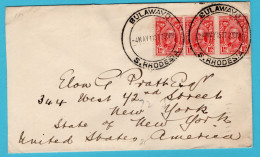 BULAWAYO
S. RHODESIA
BULAWAYO
S. RHODESIA
Elon G. Pratt Esqr
344 West 42nd Street
New York
State of New York
United States, America